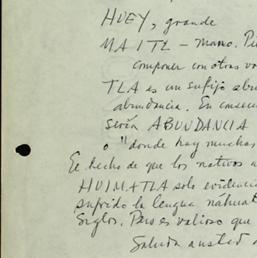 HUEY, grande
MAITL - mano. Pu
componer con otras vo
TLA es un sufijo abu
abundancia. En consecu
sería ABUNDANCIA
o "donde hay muchas
El hecho de que los nativos a
HUIMATLA solo evidencia
sufrido la lengua nahuat
Siglos. Pero es valioso que
Saluda a usted a